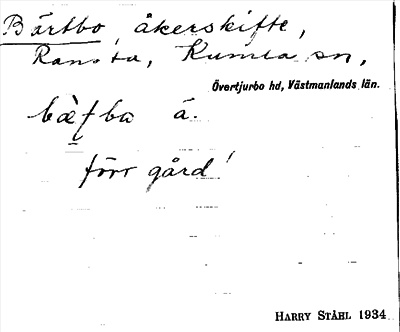 Bärtbo, åkerskifte,
Ransta, Kumla sn,
Övertjurbo hd, Västmanlands län.
bæ̀ʈba å.
förr gård!
HARRY STÅHL 1934